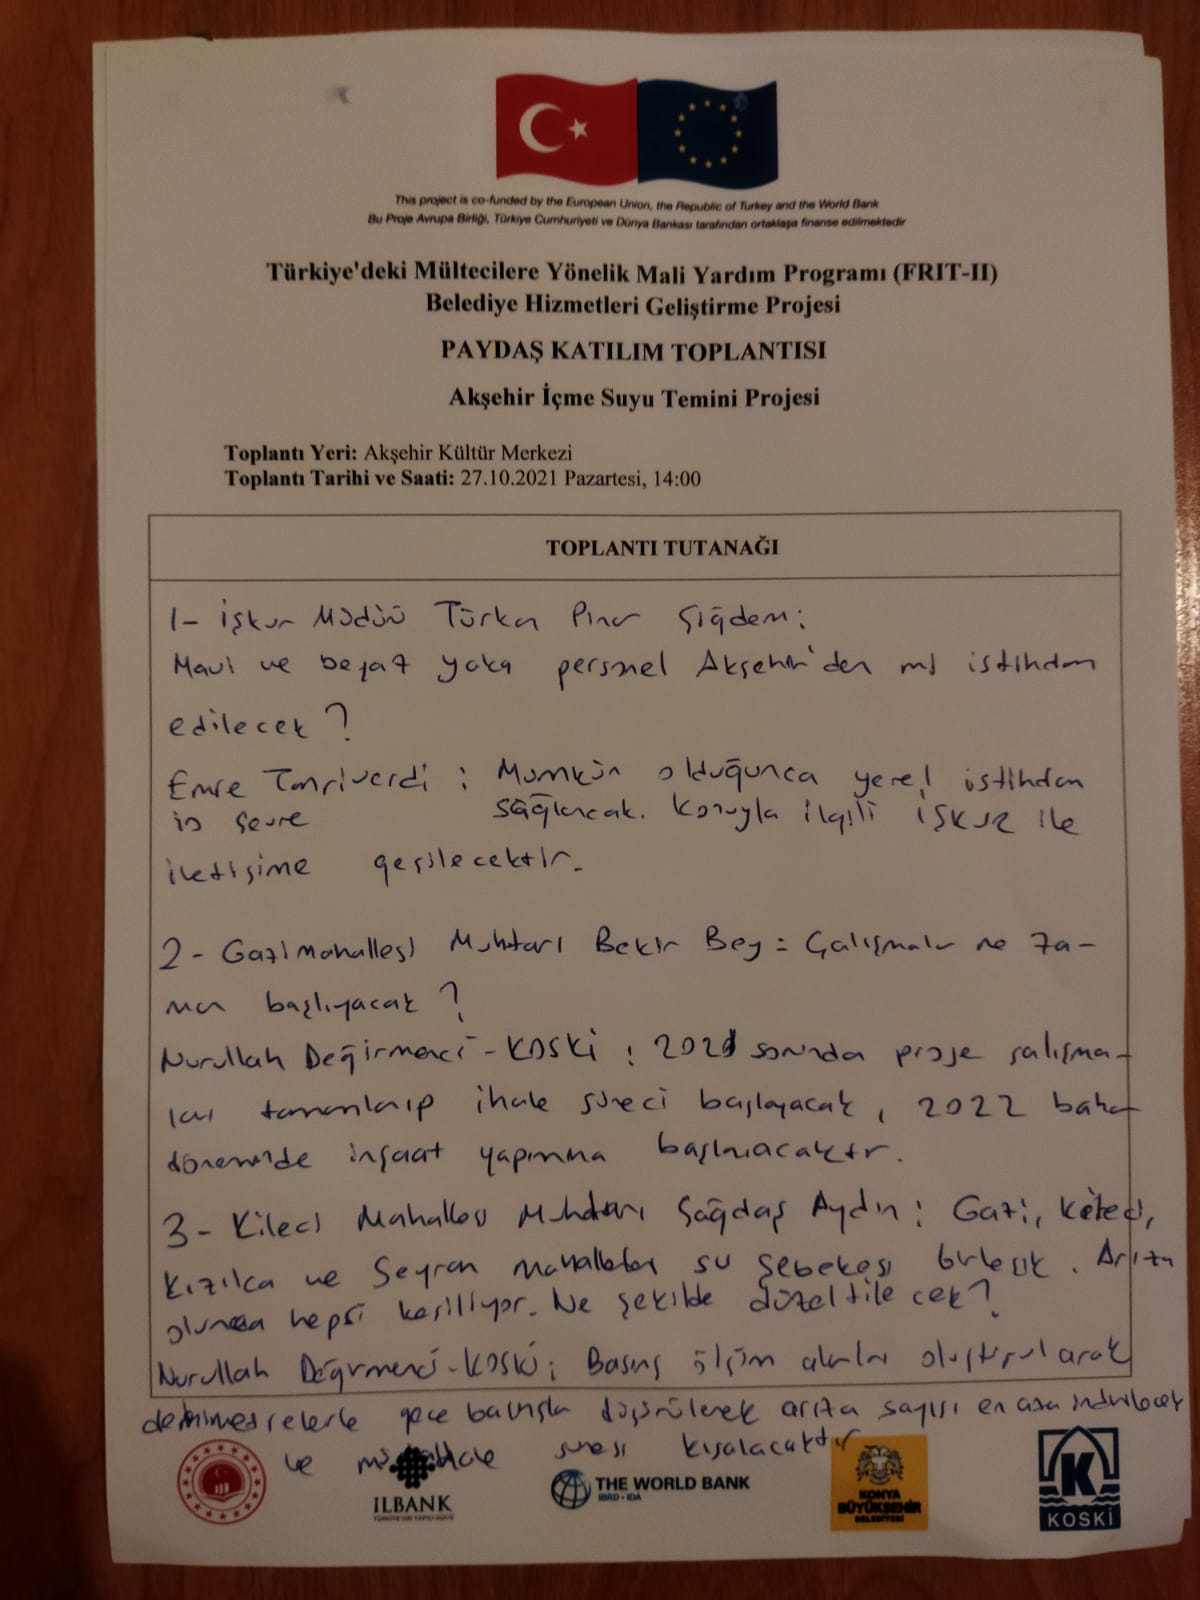 This project is co-funded by the European Union, the Republic of Turkey and the World Bank
Bu Proje Avrupa Birliği, Türkiye Cumhuriyeti ve Dünya Bankası tarafından ortaklaşa finanse edilmektedir
Türkiye'deki Mültecilere Yönelik Mali Yardım Programı (FRIT-II)
Belediye Hizmetleri Geliştirme Projesi
PAYDAŞ KATILIM TOPLANTISI
Akşehir İçme Suyu Temini Projesi
Toplantı Yeri: Akşehir Kültür Merkezi
Toplantı Tarihi ve Saati: 27.10.2021 Pazartesi, 14:00
TOPLANTI TUTANAĞI
1- İşkur Müdürü Türkan Pınar Çiğdem:
Mavi ve beyaz yaka personel Akşehir'den mi istihdam
edilecek?
Emre Tanrıverdi : Mümkün olduğunca yerel istihdam
io çevre sağlanacak. Konuyla ilgili İŞKUR ile
iletişime geçilecektir.
2- Gazi mahallesi Muhtarı Bekir Bey: Çalışmalar ne za-
man başlıyacak?
Nurullah Değirmenci - KOSKİ : 2021 sonunda proje çalışma-
ları tamamlanıp ihale süreci başlayacak, 2022 bahar
döneminde inşaat yapımına başlanacaktır.
3- Kileci Mahallesi Muhtarı Çağdaş Aydın : Gazi, Kileci,
Kızılca ve Seyran mahalleleri su şebekesi birleşik. Arıza
olunca hepsi kesiliyor. Ne şekilde düzeltilecek?
Nurullah Değirmenci - KOSKİ: Basınç ölçüm alanları oluşturularak
gece düşürülerek arıza sayısı en aza indirilecek
ve müdahale süresi kısalacaktır
İLBANK
THE WORLD BANK
IBRD • IDA
KONYA
BÜYÜKŞEHİR
BELEDİYESİ
KOSKİ